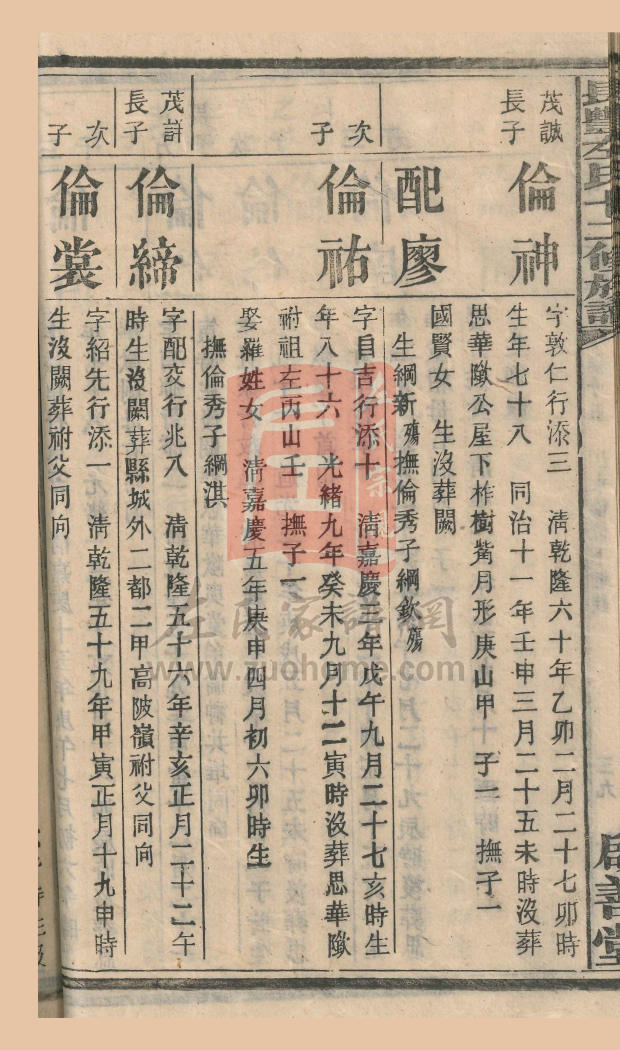 長豐左氏十二修族譜
啟善堂
茂誠
長子
倫神
字敦仁行添三 清乾隆六十年乙卯二月二十七卯時
生年七十八 同治十一年壬申三月二十五未時沒葬
思華隊公屋下柞樹觜月形庚山甲 子一 撫子一
配廖
國賢女 生沒葬闕
生綱新殤撫倫秀子綱欽殤
次
子
倫祐
字自吉行添十 清嘉慶三年戊午九月二十七亥時生
年八十六 光緒九年癸未九月十二寅時沒葬思華隊
祔祖左丙山壬 撫子一
娶羅姓女 清嘉慶五年庚申四月初六卯時生
撫倫秀子綱淇
茂訐
長子
倫締
字配交行兆八 清乾隆五十六年辛亥正月二十二午
時生沒闕葬縣城外二都二甲高陂嶺祔父同向
次
子
倫裳
字紹先行添一 清乾隆五十九年甲寅正月十九申時
生沒闕葬祔父同向
左氏家譜網
www.zuohome.com